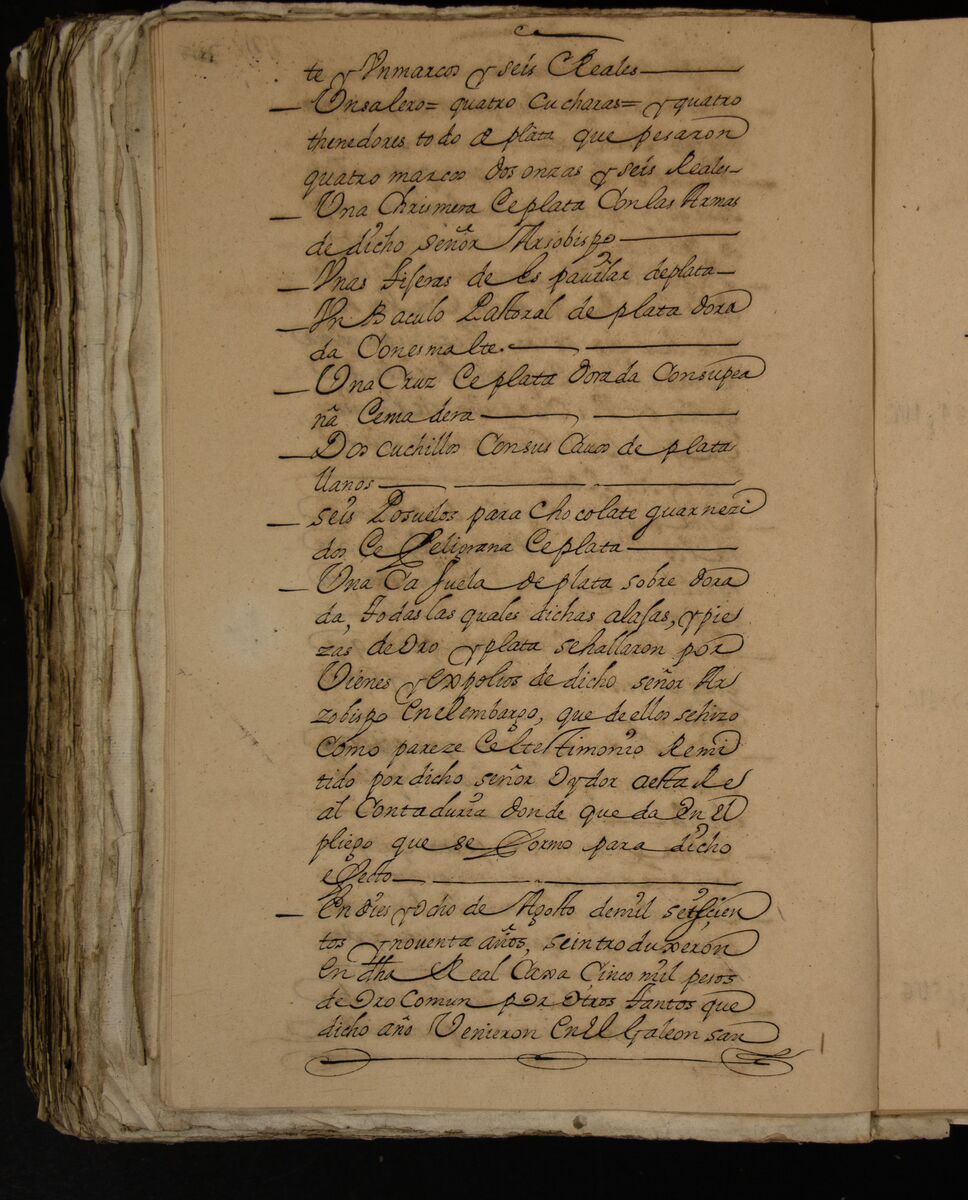 te y Un marcos y seis Reales
Un salero= quatro cucharas= y quatro
thenedores todo de plata que pesaron
quatro marcos dos onzas y seis Reales
Una Chrismera de plata Con las Armas
de dicho señor Arsobispo
Unas tiseras de Es pavilar de plata
Un Baculo Pastoral de plata dora
da Con esmalte.
Una Cruz de plata dorada Con su pea
ña de madera
Dos cuchillos Con sus Cavos de plata
llanos
seis Posuelos para Chocolate guarnezi
dos de feligrana de plata
Una Casuela de plata sobre dora
da, todas las quales dichas alajas, y pie
zas de Oro y plata se hallaron por
Vienes y expolios de dicho señor Ar
zobispo En el embargo, que de ellos se hizo
Como pareze del testimonio Remi
tido por dicho señor Oydor a esta Re
al Contaduria donde queda En El
pliego que se formo para dicho
efecto
En dies y Ocho de Agosto de mil seiscien
tos y noventa años, se introduxeron
En dha Real Caxa Cinco mil pesos
de Oro Comun por Otros tantos que
dicho año Venieron En El Galeon san